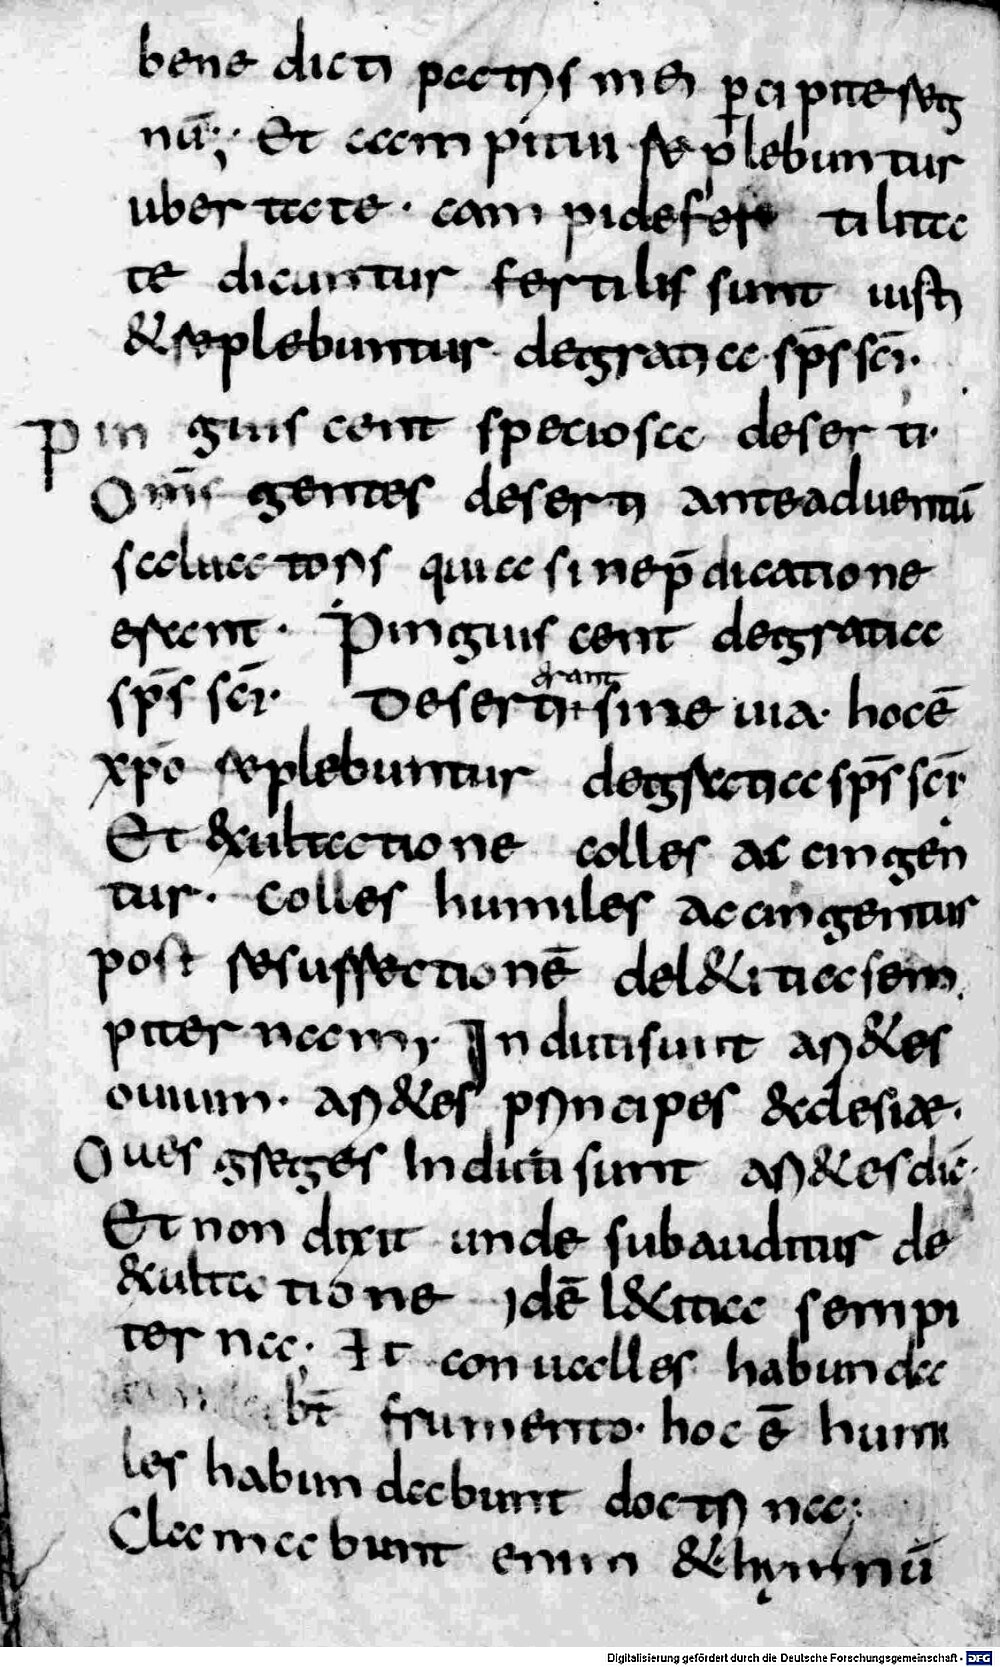 bene dicti patris mei p̱cipite reg
nū; Et campitui replebuntur
ubertate · campi de fer tilita
te dicuntur fertilis sunt iusti
& replebuntur de gratia sp̄s sc̄i·
Pin guis cent speciosa deserti·
Om̄s gentes deserti ante aduentū
saluatoris quia sine p̄dicatione
erant · Pinguis cent de gratia
sp̄s sc̄i· Deserti erant sine uia· hoc ē
xp̄o replebuntur de gratia sp̄s sc̄i
Et &xultatione colles accingen
tur · Colles humiles accingentur
post resurrectionē de l&itia sem
piternam; Induti sunt ari&es
ouium · ari&es principes &clesiæ·
Oues greges Induti sunt ari&es dic̄·
Et non dixit unde subauditur de
&xultatione idē l&itia sempi
terna; Et conualles habunda
bt̄ frumento · hoc ē humi
les habundabunt doctrina;
Clamabunt enim &hymnū
Digitalisierung gefördert durch die Deutsche Forschungsgemeinschaft - DFG